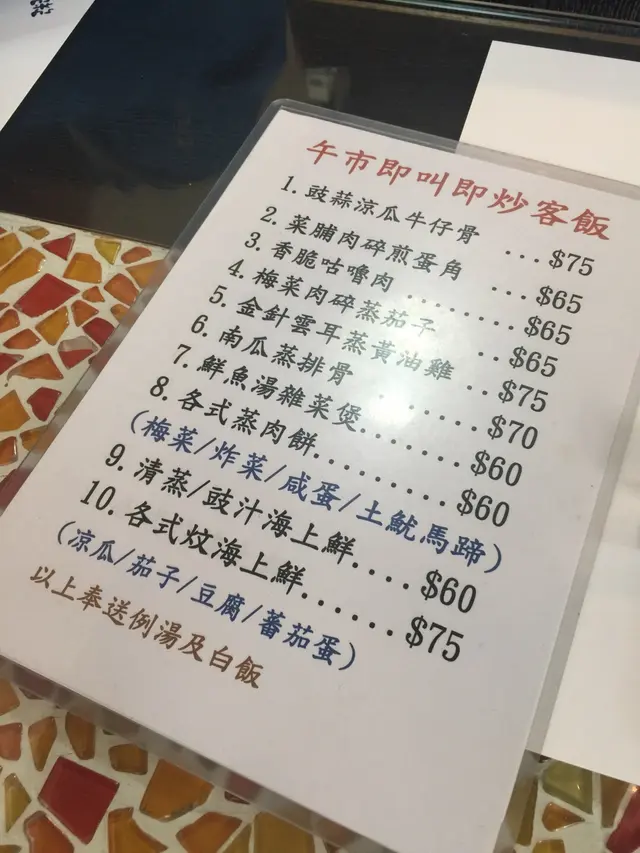 午市即叫即炒客飯
1. 豉蒜涼瓜牛仔骨 ... $75
2. 菜脯肉碎煎蛋角 ... $65
3. 香脆咕嚕肉 ........ $65
4. 梅菜肉碎蒸茄子 .. $65
5. 金針雲耳蒸黃油雞 .. $75
6. 南瓜蒸排骨 ........ $70
7. 鮮魚湯雜菜煲....... $60
8. 各式蒸肉餅.......... $60
(梅菜/炸菜/咸蛋/土魷馬蹄)
9. 清蒸/豉汁海上鮮.... $60
10. 各式炆海上鮮...... $75
(凉瓜/茄子/豆腐/蕃茄蛋)
以上奉送例湯及白飯